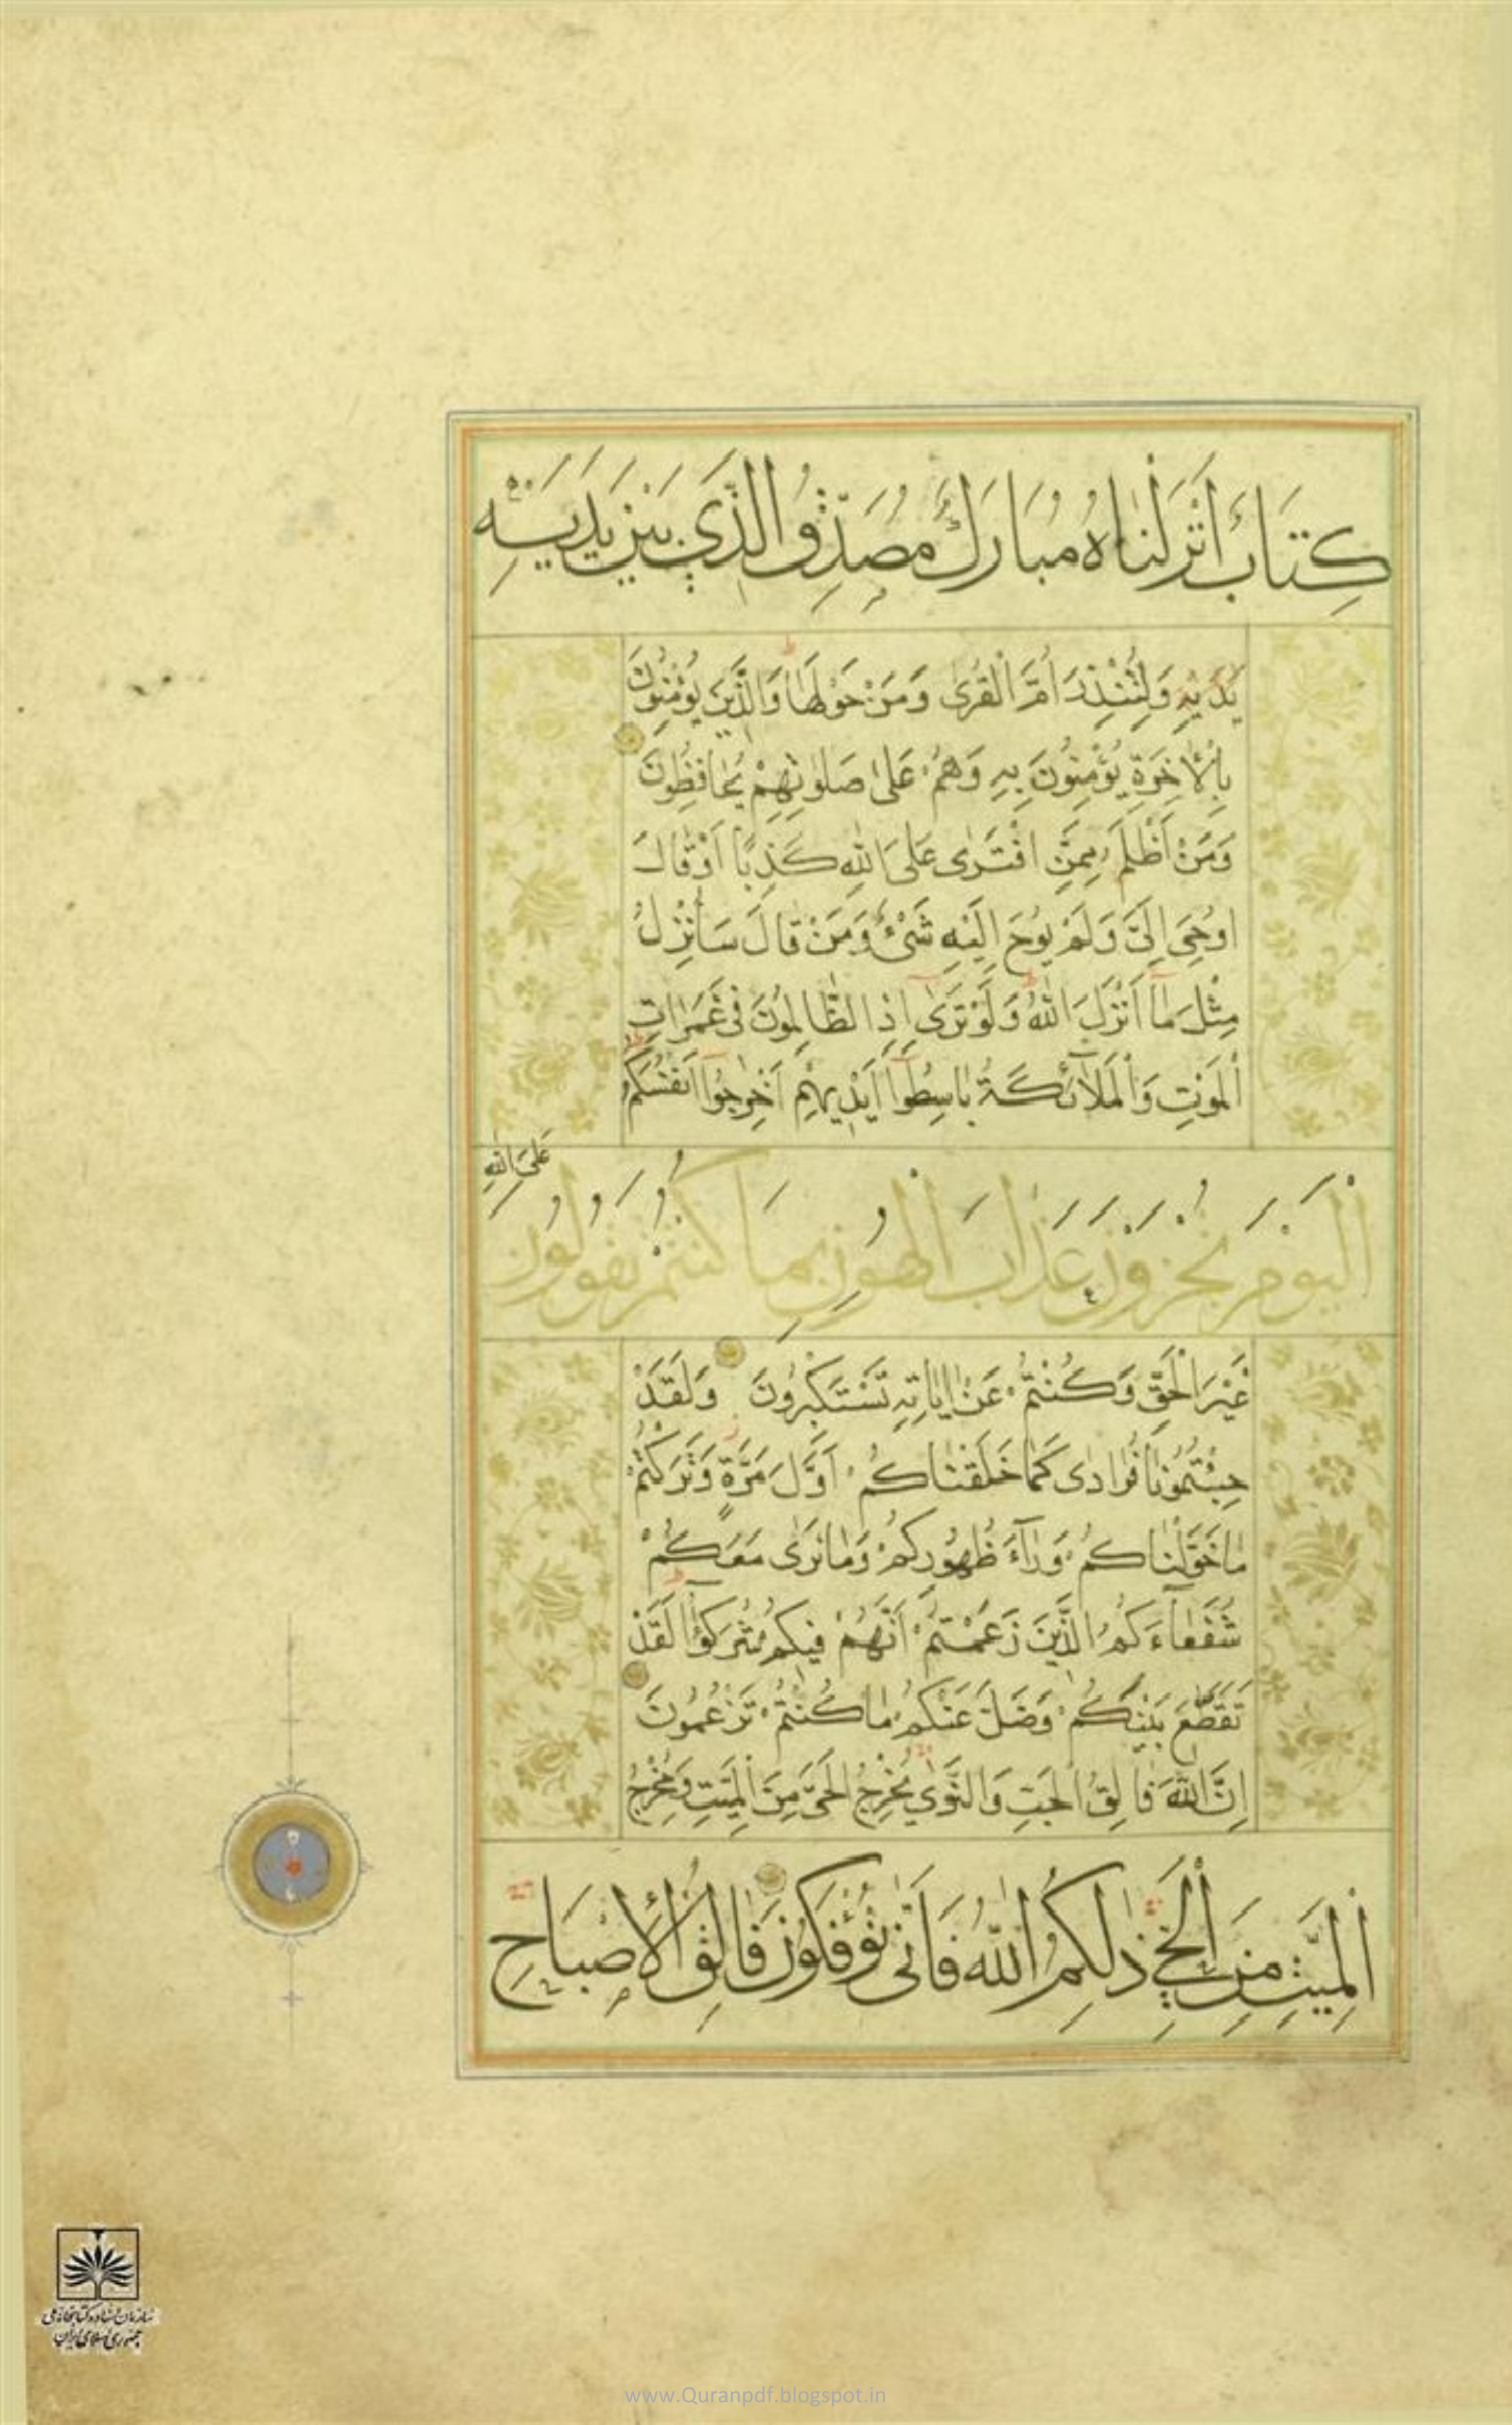 كِتَابٌ أَنْزَلْنَاهُ مُبَارَكٌ مُصَدِّقُ الَّذِي بَيْنَ يَدَيْهِ
يَدَيْهِ وَلِتُنْذِرَ أُمَّ الْقُرَىٰ وَمَنْ حَوْلَهَا وَالَّذِينَ يُؤْمِنُونَ
بِالْاٰخِرَةِ يُؤْمِنُونَ بِهِ وَهُمْ عَلَىٰ صَلَوٰتِهِمْ يُحَافِظُونَ
وَمَنْ أَظْلَمُ مِمَّنِ افْتَرَىٰ عَلَى اللهِ كَذِبًا أَوْ قَالَ
اُوحِيَ إِلَيَّ وَلَمْ يُوحَ إِلَيْهِ شَيْءٌ وَمَنْ قَالَ سَأُنْزِلُ
مِثْلَ مَا أَنْزَلَ اللهُ وَلَوْ تَرَىٰ إِذِ الظَّالِمُونَ فِي غَمَرَاتِ
الْمَوْتِ وَالْمَلَآئِكَةُ بَاسِطُوا أَيْدِيهِمْ أَخْرِجُوا أَنْفُسَكُمُ
الْيَوْمَ تُجْزَوْنَ عَذَابَ الْهُونِ بِمَا كُنْتُمْ تَقُولُونَ
عَلَى اللهِ
غَيْرَ الْحَقِّ وَكُنْتُمْ عَنْ اٰيَاتِهِ تَسْتَكْبِرُونَ وَلَقَدْ
جِئْتُمُونَا فُرَادَىٰ كَمَا خَلَقْنَاكُمْ أَوَّلَ مَرَّةٍ وَتَرَكْتُمْ
مَا خَوَّلْنَاكُمْ وَرَآءَ ظُهُورِكُمْ وَمَا نَرَىٰ مَعَكُمْ
شُفَعَآءَكُمُ الَّذِينَ زَعَمْتُمْ أَنَّهُمْ فِيكُمْ شُرَكٰٓؤُا لَقَدْ
تَقَطَّعَ بَيْنَكُمْ وَضَلَّ عَنْكُمْ مَا كُنْتُمْ تَزْعُمُونَ
إِنَّ اللهَ فَالِقُ الْحَبِّ وَالنَّوَىٰ يُخْرِجُ الْحَيَّ مِنَ الْمَيِّتِ وَمُخْرِجُ
الْمَيِّتِ مِنَ الْحَيِّ ذٰلِكُمُ اللهُ فَأَنَّىٰ تُؤْفَكُونَ فَالِقُ الْإِصْبَاحِ
سازمان اسناد و کتابخانه ملی
جمهوری اسلامی ایران
www.Quranpdf.blogspot.in